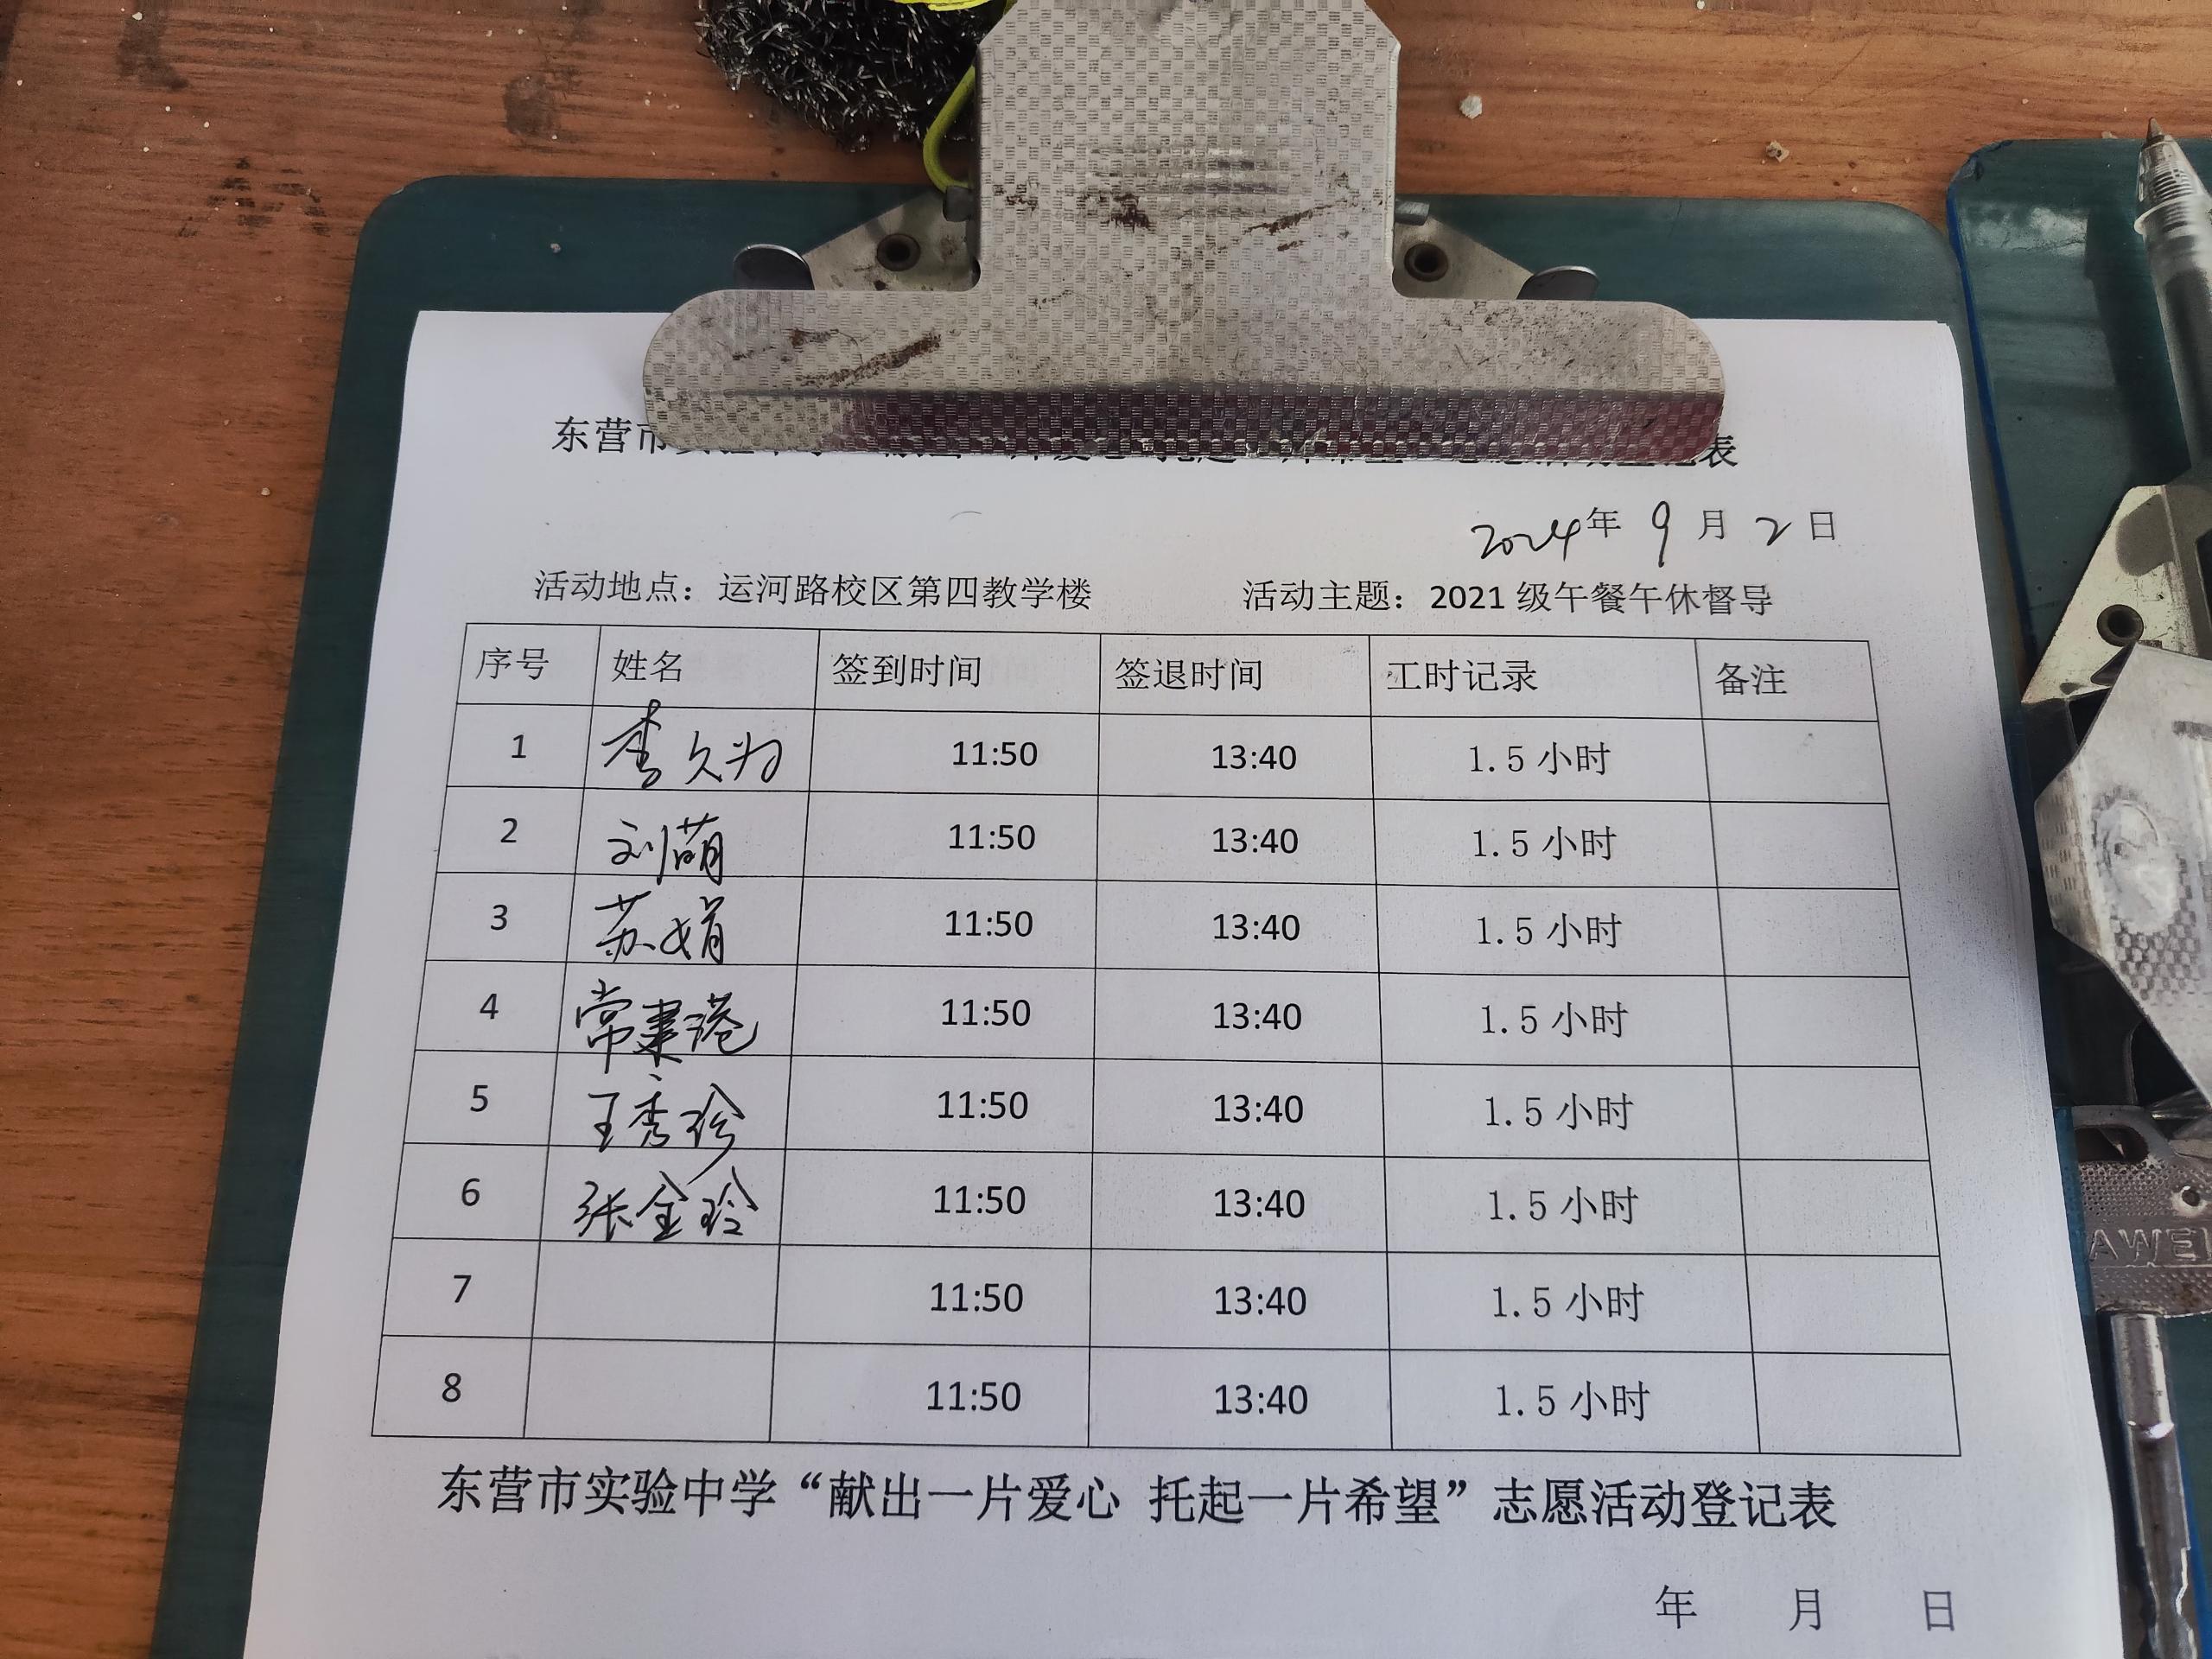 东营市实验中学“献出一片爱心 托起一片希望”志愿活动登记表
2024年 9 月 2 日
活动地点：运河路校区第四教学楼 活动主题：2021 级午餐午休督导
序号 姓名 签到时间 签退时间 工时记录 备注
1 李久为 11:50 13:40 1.5 小时
2 刘萌 11:50 13:40 1.5 小时
3 苏娟 11:50 13:40 1.5 小时
4 常港 11:50 13:40 1.5 小时
5 王秀珍 11:50 13:40 1.5 小时
6 张金玲 11:50 13:40 1.5 小时
7 11:50 13:40 1.5 小时
8 11:50 13:40 1.5 小时
东营市实验中学“献出一片爱心 托起一片希望”志愿活动登记表
年 月 日
AWEI